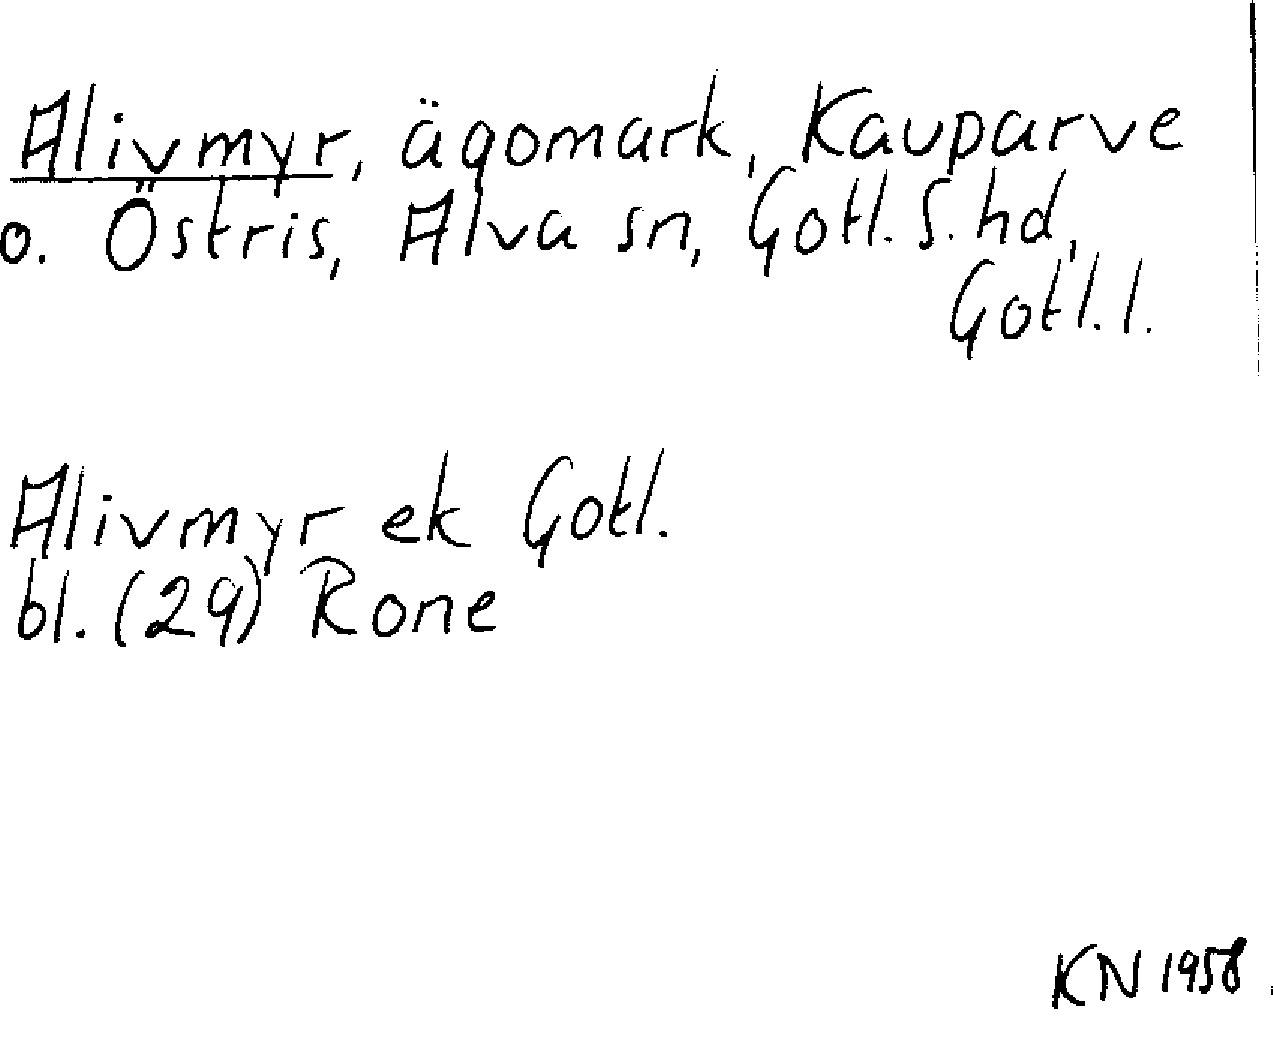 Alivmyr, ägomark, Kauparve
o. Östris, Alva sn, Gotl. S. hd,
Gotl. l.
Alivmyr ek Gotl.
bl. (29) Rone
KN 1958.